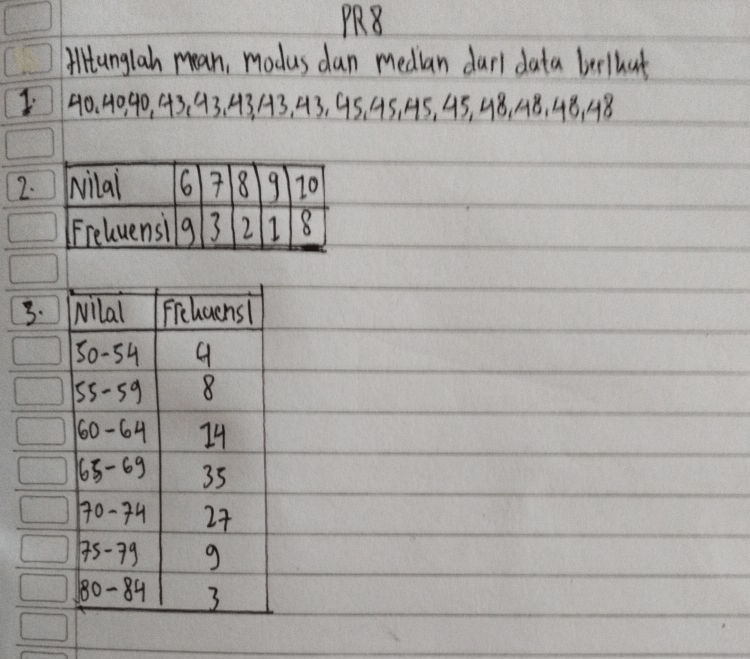 PR 8
Hitunglah mean, modus dan median dari data berikut
1. 40,40,40,43,43,43,43,43,45,45,45,45,48,48,48,48
2. Nilai 6 7 8 9 10
Frekuensi 9 3 2 1 8
3. Nilai Frekuensi
50-54 4
55-59 8
60-64 14
65-69 35
70-74 27
75-79 9
80-84 3